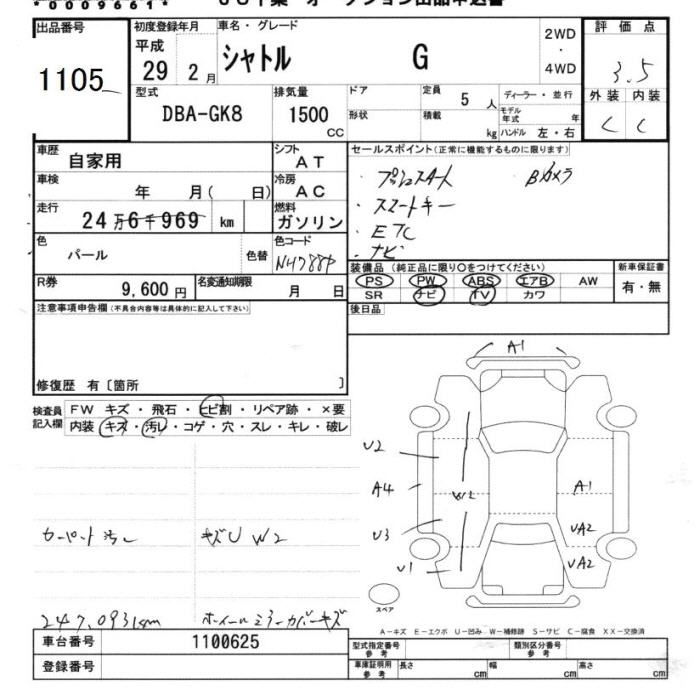 *0009661*
出品番号 初度登録年月 車名・グレード 2WD・4WD 評価点
1105 平成 29 2月 シャトル G 3.5
外装 内装
C C
型式 DBA-GK8 排気量 1500 CC
ドア 定員 5人 ディーラー・並行
形状 積載 kg モデル年式 年
ハンドル 左・右
車歴 自家用 シフト AT
車検 年 月( 日) 冷房 AC
走行 24万6千969 km 燃料 ガソリン
色 パール 色替 色コード NH788P
R券 9,600円 名変通知期限 月 日
セールスポイント(正常に機能するものに限ります)
・プッシュスタート ・Bカメラ
・スマートキー
・ETC
・ナビ
装備品(純正品に限り○をつけてください) 新車保証書
PS PW ABS エアB AW 有・無
SR ナビ TV カワ
後日品
注意事項申告欄(不具合内容等は具体的に記入して下さい)
修復歴 有〔箇所 〕
検査員記入欄 FW キズ・飛石・ヒビ割・リペア跡・×要
内装 キズ・汚レ・コゲ・穴・スレ・キレ・破レ
カーペット汚レ キズU W2
247,093km ホイールミラーカバーキズ
A1
U2
A4
W2
A1
U3
UA2
U1
UA2
スペア
A-キズ E-エクボ U-凹み W-補修跡 S-サビ C-腐食 XX-交換済
車台番号 1100625
登録番号
型式指定番号 参考 類別区分番号 参考
車庫証明用 参考 長さ cm 幅 cm 高さ cm